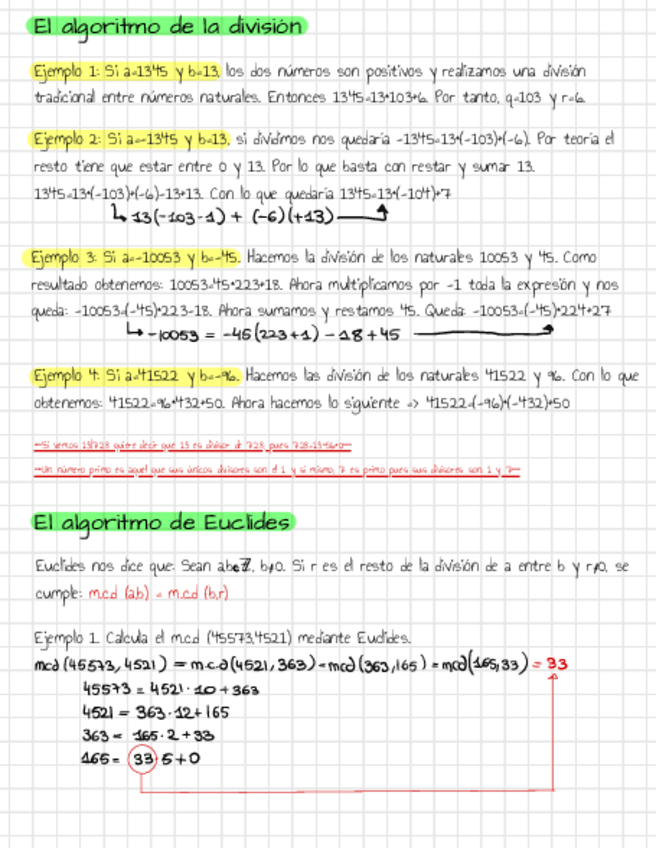 El algoritmo de la división
Ejemplo 1: Si a=1345 y b=13, los dos números son positivos y realizamos una división
tradicional entre números naturales. Entonces 1345=13·103+6. Por tanto, q=103 y r=6
Ejemplo 2: Si a=-1345 y b=13, si dividimos nos quedaría -1345=13·(-103)+(-6). Por teoría el
resto tiene que estar entre 0 y 13. Por lo que basta con restar y sumar 13.
1345=13·(-103)+(-6)-13+13. Con lo que quedaría 1345=13·(-104)+7
13(-103-1) + (-6)(+13)
Ejemplo 3: Si a=-10053 y b=-45. Hacemos la división de los naturales 10053 y 45. Como
resultado obtenemos: 10053=45·223+18. Ahora multiplicamos por -1 toda la expresión y nos
queda: -10053=(-45)·223-18. Ahora sumamos y restamos 45. Queda: -10053=(-45)·224+27
-10053 = -45(223+1) - 18 + 45
Ejemplo 4: Si a=41522 y b=-96. Hacemos las división de los naturales 41522 y 96. Con lo que
obtenemos: 41522=96·432+50. Ahora hacemos lo siguiente => 41522=(-96)·(-432)+50
Si vemos 13/728 quiere decir que 13 es divisor de 728, pues 728=13·56+0
Un número primo es aquel que sus únicos divisores son el 1 y si mismo, 7 es primo pues sus divisores son 1 y 7
El algoritmo de Euclides
Euclides nos dice que: Sean a,b∈Z, b≠0. Si r es el resto de la división de a entre b y r≠0, se
cumple: m.c.d (a,b) = m.c.d (b,r)
Ejemplo 1. Calcula el m.c.d (45573,4521) mediante Euclides.
mcd (45573, 4521) = m.c.d(4521, 363) = mcd(363,165) = mcd(165,33) = 33
45573 = 4521·10 + 363
4521 = 363·12 + 165
363 = 165·2 + 33
165 = 33·5 + 0